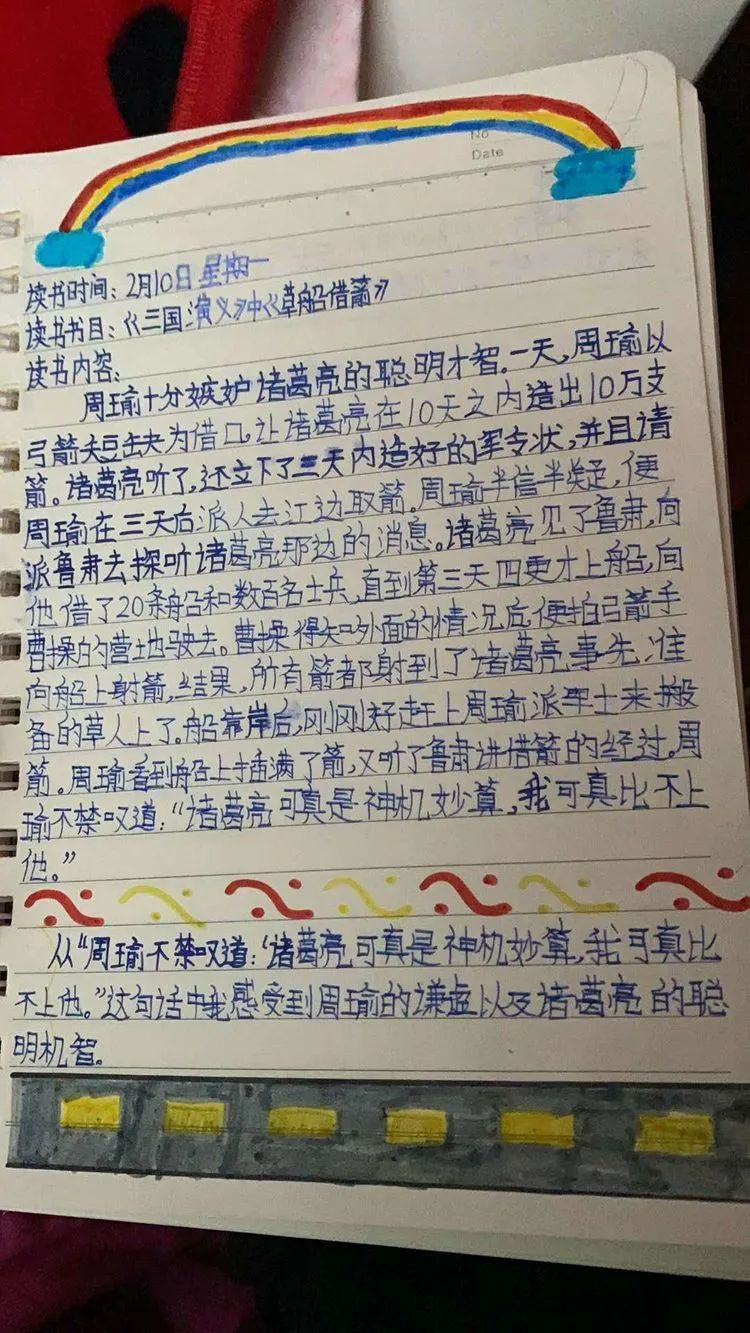 No
Date
读书时间：2月10日 星期一
读书书目：《三国演义》中《草船借箭》
读书内容：
周瑜十分嫉妒诸葛亮的聪明才智。一天，周瑜以
弓箭短缺为借口，让诸葛亮在10天之内造出10万支
箭。诸葛亮听了，还立下了三天内造好的军令状，并且请
周瑜在三天后派人去江边取箭。周瑜半信半疑，便
派鲁肃去探听诸葛亮那边的消息。诸葛亮见了鲁肃，向
他借了20条船和数百名士兵，直到第三天四更才上船，向
曹操的营地驶去。曹操得知外面的情况后，便拍弓箭手
向船上射箭，结果，所有箭都射到了诸葛亮事先准
备的草人上了。船靠岸后，刚刚好赶上周瑜派军士来搬
箭。周瑜看到船上插满了箭，又听了鲁肃讲借箭的经过。周
瑜不禁叹道：“诸葛亮可真是神机妙算，我可真比不上
他。”
从“周瑜不禁叹道：‘诸葛亮可真是神机妙算，我可真比
不上他。”这句话中我感受到周瑜的谦虚以及诸葛亮的聪
明机智。